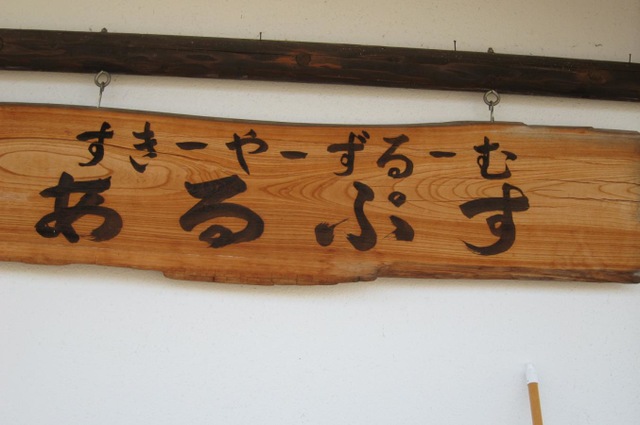 すきーやーずるーむ
あるぷす